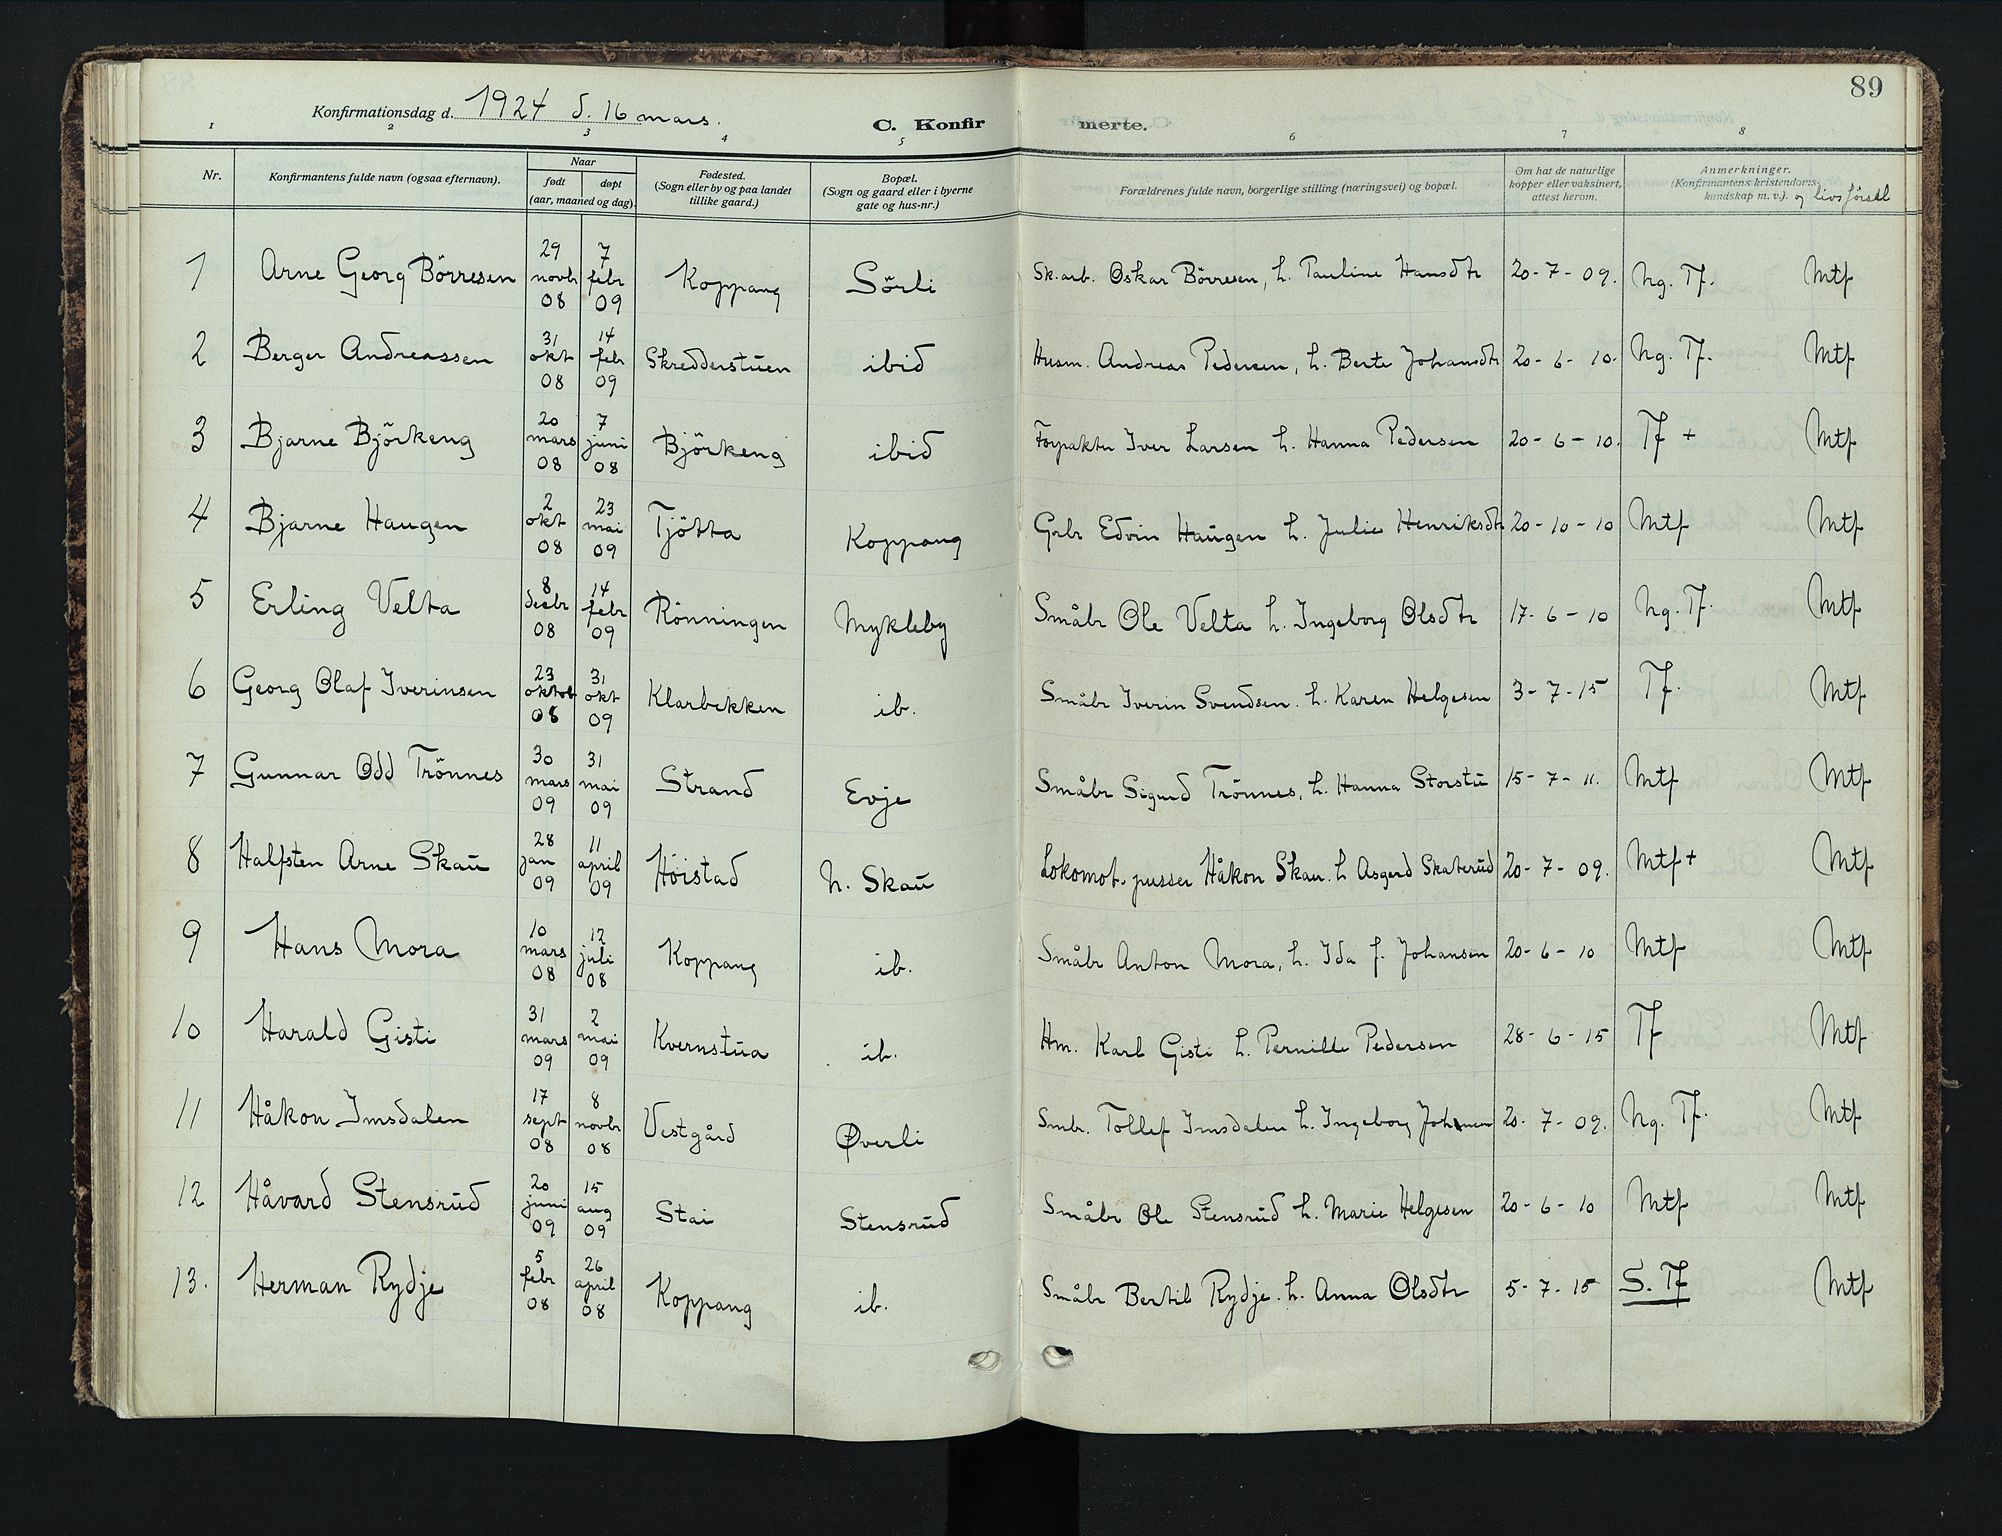 89
Konfirmationsdag d. 1924 d. 16 mars.
C. Konfirmerte.
1 2 3 4 5 6 7 8
Nr. Konfirmantens fulde navn (ogsaa efternavn). Naar født døpt (aar, maaned og dag). Fødested. (Sogn eller by og paa landet tillike gaard.) Bopæl. (Sogn og gaard eller i byerne gate og hus-nr.) Forældrenes fulde navn, borgerlige stilling (næringsvei) og bopæl. Om hat de naturlige kopper eller vaksinert, attest herom. Anmerkninger. (Konfirmantens kristendomskundskap m. v.). og livsførsel
1 Arne Georg Börresen 29 novbr 08 7 febr 09 Koppang Sörli Sk.arb. Oskar Börresen, h. Pauline Hansdtr 20-7-09. Ng. Tf. Mtf
2 Berger Andreassen 31 okt 08 14 febr 09 Skredderstuen ibid Husm. Andreas Pedersen, h. Berte Johansdtr 20-6-10. Ng. Tf. Mtf
3 Bjarne Björkeng 20 mars 08 7 juni 08 Björkeng ibid Forpaktr Iver Larsen h. Hanna Pedersen 20-6-10. Tf + Mtf
4 Bjarne Haugen 2 okt 08 23 mai 09 Tjötta Koppang Grbr Edvin Haugen h. Julie Henriksdtr 20-10-10 Mtf Mtf
5 Erling Velta 8 decbr 08 14 febr 09 Rönningen Mykleby Småbr Ole Velta h. Ingeborg Olsdtr 17-6-10 Ng. Tf. Mtf
6 Georg Olaf Iverinsen 23 oktob 08 31 okt 09 Klarbekken ib. Småbr Iverin Svendsen. h. Karen Helgesen 3-7-15 Tf. Mtf
7 Gunnar Odd Trönnes 30 mars 09 31 mai 09 Strand Evje Småbr Sigurd Trönnes, h. Hanna Storstu 15-7-11. Mtf Mtf
8 Halfsten Arne Skau 28 jan 09 11 april 09 Höistad N. Skau Lokomot. pusser Håkon Skau. h Asgerd Skaterud 20-7-09. Mtf + Mtf
9 Hans Mora 10 mars 08 12 juli 08 Koppang ib. Småbr Anton Mora, h. Ida f. Johansen 20-6-10 Mtf Mtf
10 Harald Gisti 31 mars 09 2 mai 09 Kvernstua ib. Hm. Karl Gisti h. Pernille Pedersen 28-6-15 Tf Mtf
11 Håkon Imsdalen 17 sept 08 8 novbr 08 Vestgård Øverli Smbr. Tollef Imsdalen h. Ingeborg 20-7-09. Ng. Tf. Mtf
12 Håvard Stensrud 20 juni 09 15 aug 09 Stai Stensrud Småbr Ole Stensrud h. Marie Helgesen 20-6-10 Mtf Mtf
13. Herman Rydje 5 febr 08 26 april 08 Koppang ib. Småbr Bertil Rydje. h. Anna Olsdtr 5-7-15 S. Tf Mtf